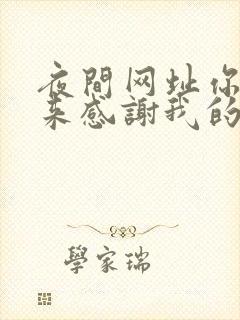 夜間网址你
来感謝我的
學家瑞